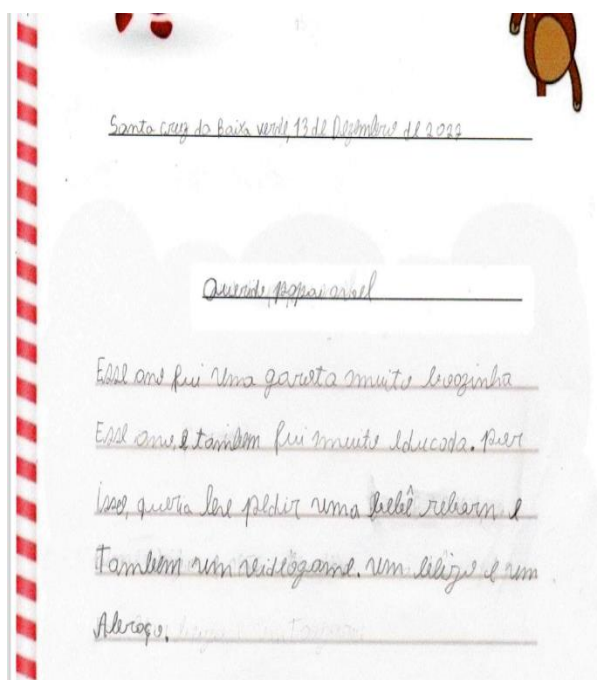 Santa cruz da Baixa verde, 13 de Dezembro de 2022
Querido, papai onel
Esse ano fui uma garota muito boazinha
Esse ano, e tambem fui muito educada. por
isso, queria lhe pedir uma bebê reborn e
Tambem um videogame. um beijo e um
Abraço.